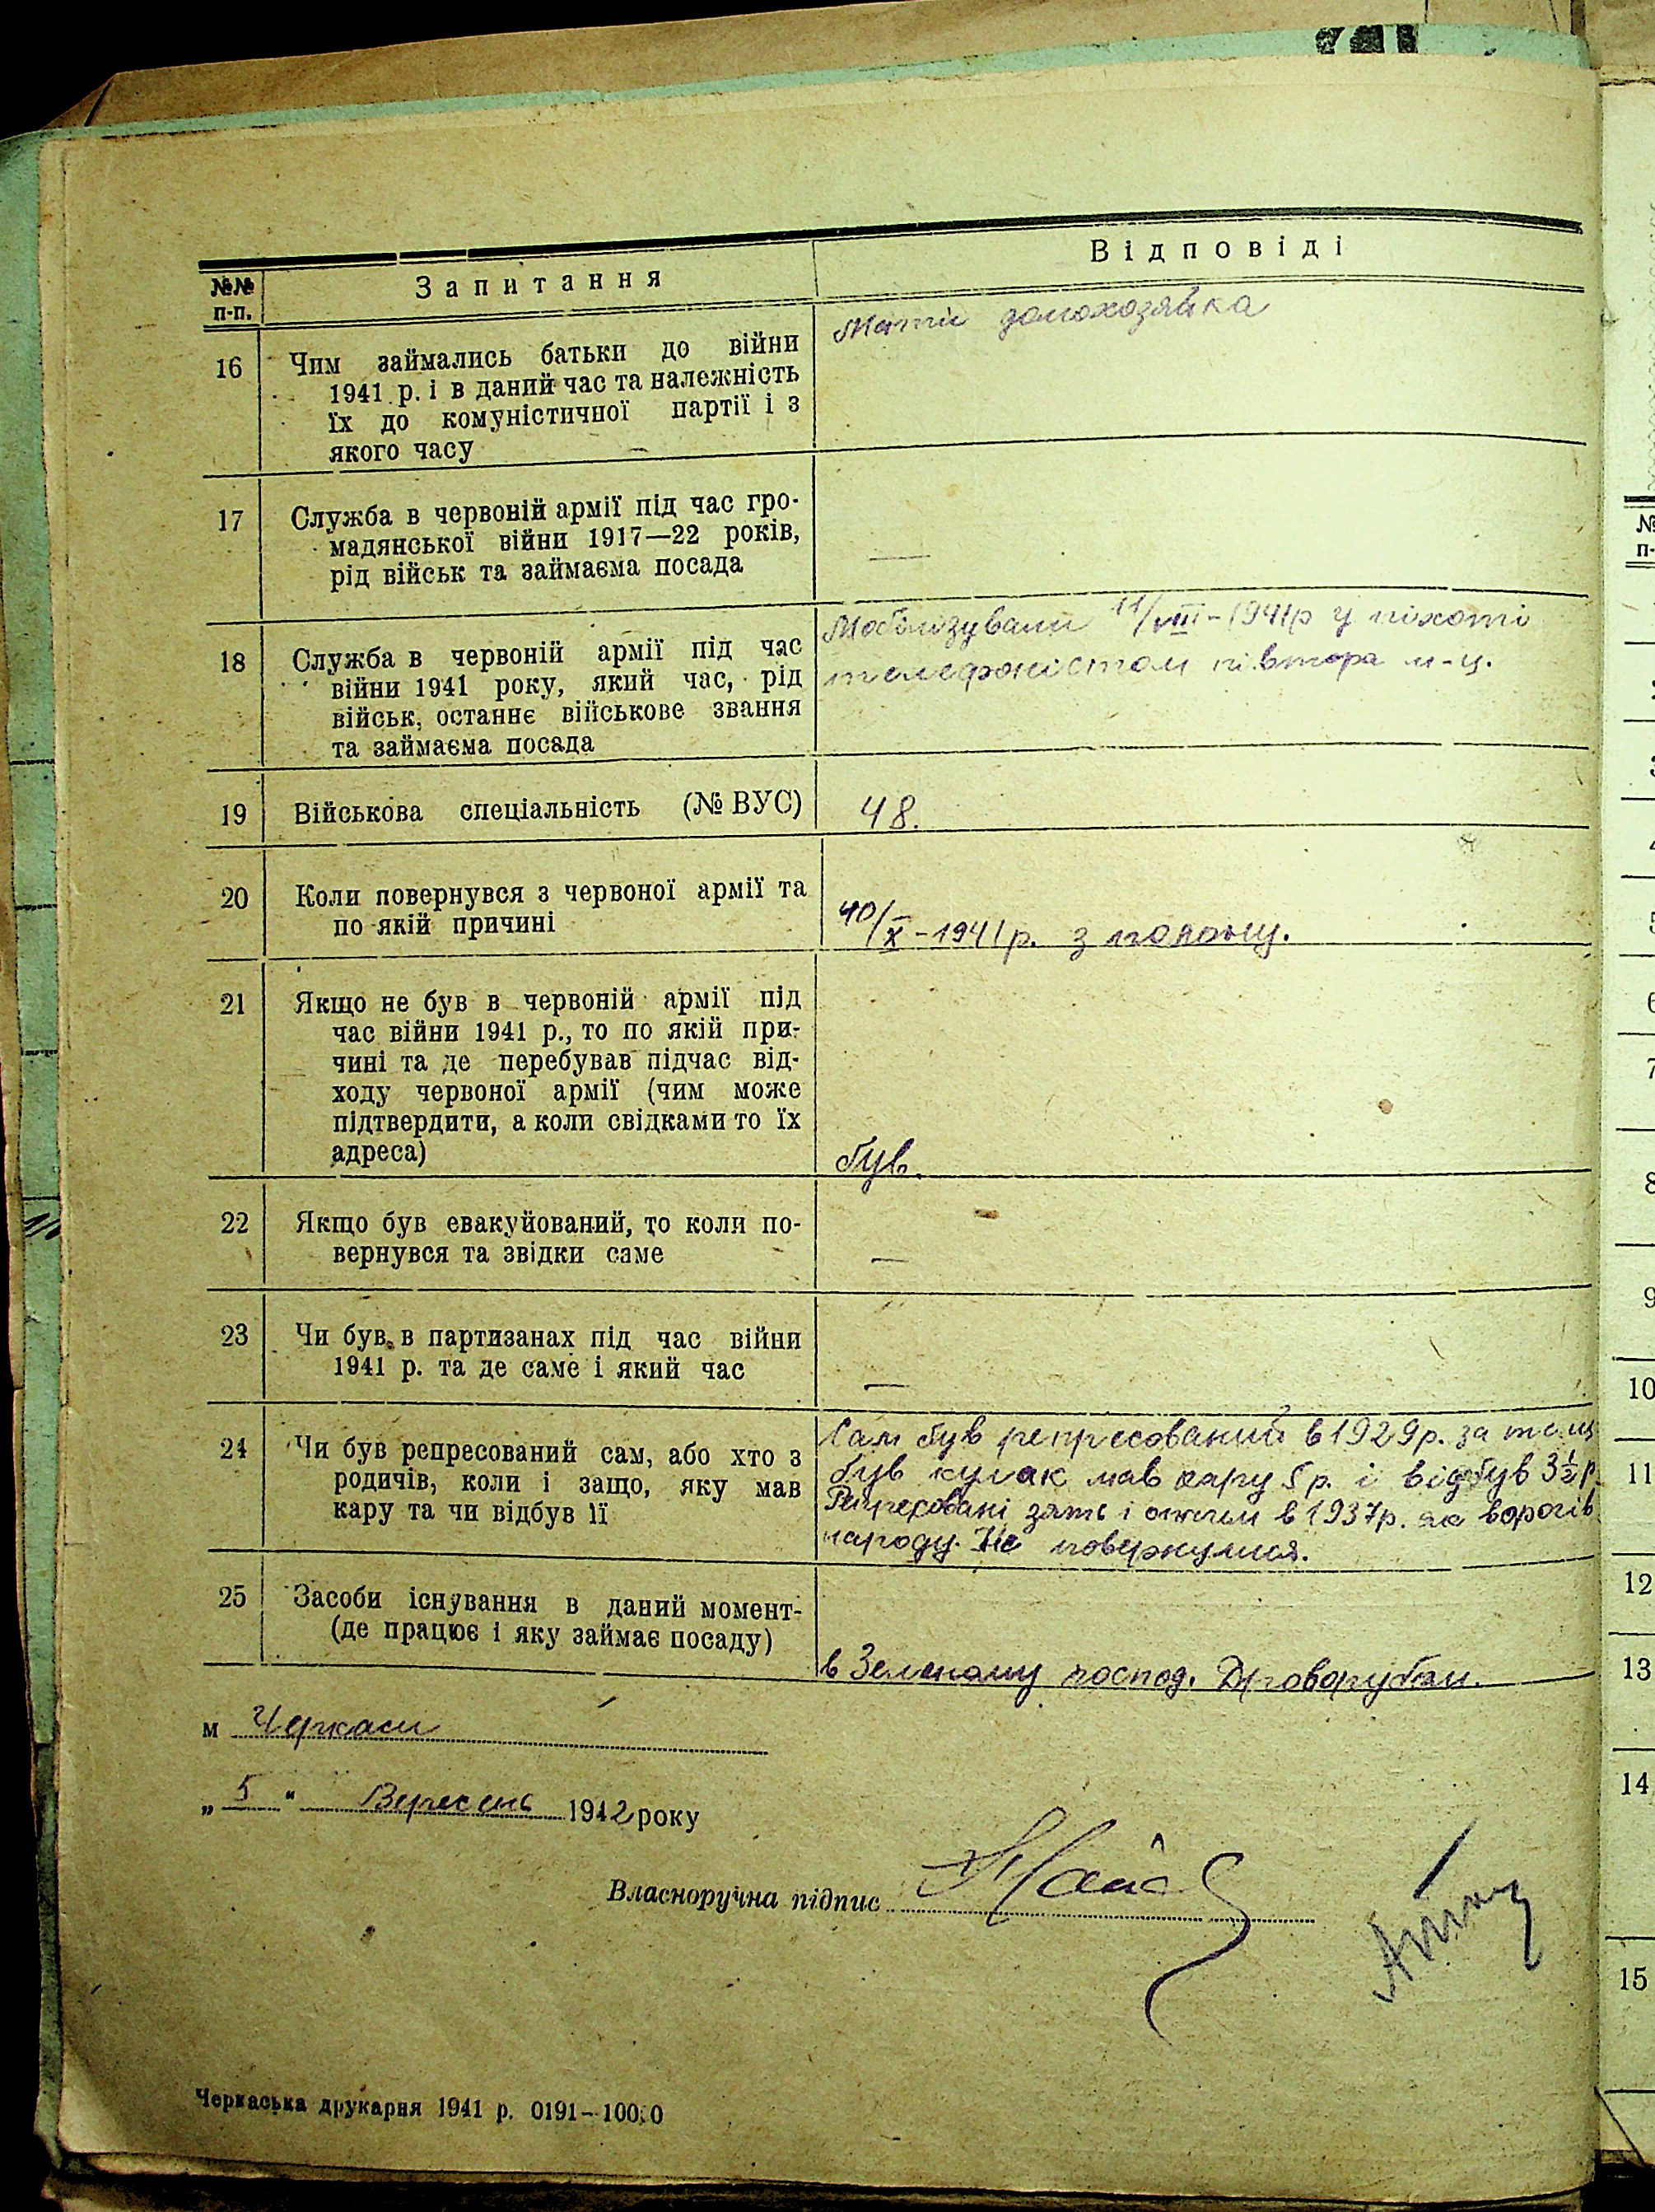 №№ п-п. Запитання Відповіді
16 Чим займались батьки до війни
1941 р. і в даний час та належність
їх до комуністичної партії і з
якого часу
Мати домохозяйка
17 Служба в червоній армії під час гро-
мадянської війни 1917—22 років,
рід військ та займаєма посада
—
18 Служба в червоній армії під час
війни 1941 року, який час, рід
військ, останнє військове звання
та займаєма посада
Мобілізували 11/VIII-1941р у піхоті
телефоністом півтора м-ц.
19 Військова спеціальність (№ ВУС)
48.
20 Коли повернувся з червоної армії та
по якій причині
10/X-1941р. з полону.
21 Якщо не був в червоній армії під
час війни 1941 р., то по якій при-
чині та де перебував підчас від-
ходу червоної армії (чим може
підтвердити, а коли свідками то їх
адреса)
був.
22 Якщо був евакуйований, то коли по-
вернувся та звідки саме
—
23 Чи був в партизанах під час війни
1941 р. та де саме і який час
—
24 Чи був репресований сам, або хто з
родичів, коли і защо, яку мав
кару та чи відбув її
Сам був репресований в 1929р. за те що
був кулак мав кару 5 р. і відбув 3½ р.
Репресовані зять і отчим в 1937р. як ворогів
народу. Не повернулися.
25 Засоби існування в даний момент-
(де працює і яку займає посаду)
в Зеленому господ. Дроворубом.
м Черкаси
„ 5 " Вересень 1942 року
Власноручна підпис
Черкаська друкарня 1941 р. 0191–10000
№
п-
6
7
8
9
10
11
12
13
14
15